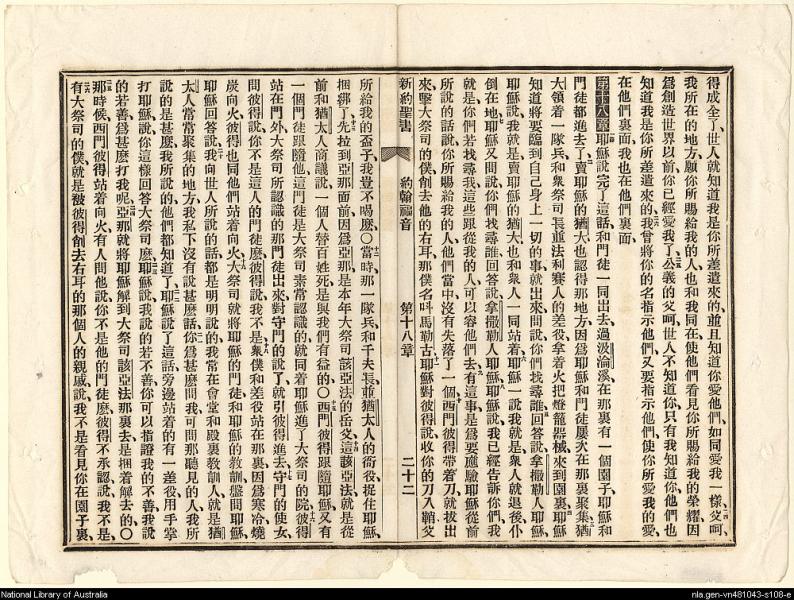 得成全了世人就知道我是你所差遣來的、並且知道你愛他們、如同愛我一樣、父呵、
我所在的地方願你所賜給我的人也和我同在使他們看見你所賜給我的榮耀因
爲創造世界以前你已經愛我了公義的父呵、世人不知道你、只有我知道你、他們也
知道我是你所差遣來的、我曾將你的名指示他們、又要指示他們、使你所愛我的愛
在他們裏面我也在他們裏面
第十八章耶穌說完了這話和門徒一同出去過汲淪溪、在那裏有一個園子、耶穌和
門徒都進去了賣耶穌的猶大也認得那地方因爲耶穌和門徒屢次在那裏聚集猶
大領着一隊兵、和衆祭司長並法利賽人的差役、拿着火把燈籠器械、來到園裏耶穌
知道將要臨到自己身上一切的事就出來問說你們找尋誰回答說拿撒勒人耶穌
耶穌說我就是賣耶穌的猶大也和衆人一同站着耶穌一說我就是衆人就退後仆
倒在地耶穌又問說你們找尋誰回答說拿撒勒人耶穌耶穌說我已經告訴你們我
就是你們若找尋我這些跟從我的人可以容他們去有這事是爲要應驗耶穌從前
所說的話說你所賜給我的人他們當中沒有失落了一個西門彼得帶着刀就拔出
來擊大祭司的僕、削去他的右耳那僕名叫馬勒古耶穌對彼得說收你的刀入鞘父
新約聖書 約翰福音 第十八章 二十二
所給我的盃子、我豈不喝麽〇當時那一隊兵和千夫長並猶太人的衙役捉住耶穌、
捆綁了先拉到亞那面前因爲亞那是本年大祭司該亞法的岳父這該亞法就是從
前和猶太人商議說一個人替百姓死是與我們有益的〇西門彼得跟隨耶穌又有
一個門徒跟隨他這門徒是大祭司素常認識的就同着耶穌進了大祭司的院彼得
站在門外大祭司所認識的那門徒出來對守門的說了就引彼得進去守門的使女
問彼得說你不是這人的門徒麽彼得說我不是衆僕和差役站在那裏因爲寒冷燒
炭向火彼得也同他們站着向火大祭司就將耶穌的門徒和耶穌的教訓盤問耶穌
耶穌回答說我向世人所說的話都是明明說的我常在會堂和殿裏教訓人就是猶
太人常常聚集的地方我私下沒有說甚麽話你爲甚麽問我可問那聽見的人我所
說的是甚麽我所說的他們都知道了耶穌說了這話旁邊站着的有一差役用手掌
打耶穌說你這樣回答大祭司麽耶穌說我說的若不善你可以指證我的不善我說
的若善爲甚麽打我呢亞那就將耶穌解到大祭司該亞法那裏去是捆着解去的〇
那時候西門彼得站着向火有人問他說你不是他的門徒麽彼得不承認說我不是、
有大祭司的僕、就是被彼得削去右耳的那個人的親戚說我不是看見你在園子裏、
National Library of Australia
nla.gen-vn481043-s108-e